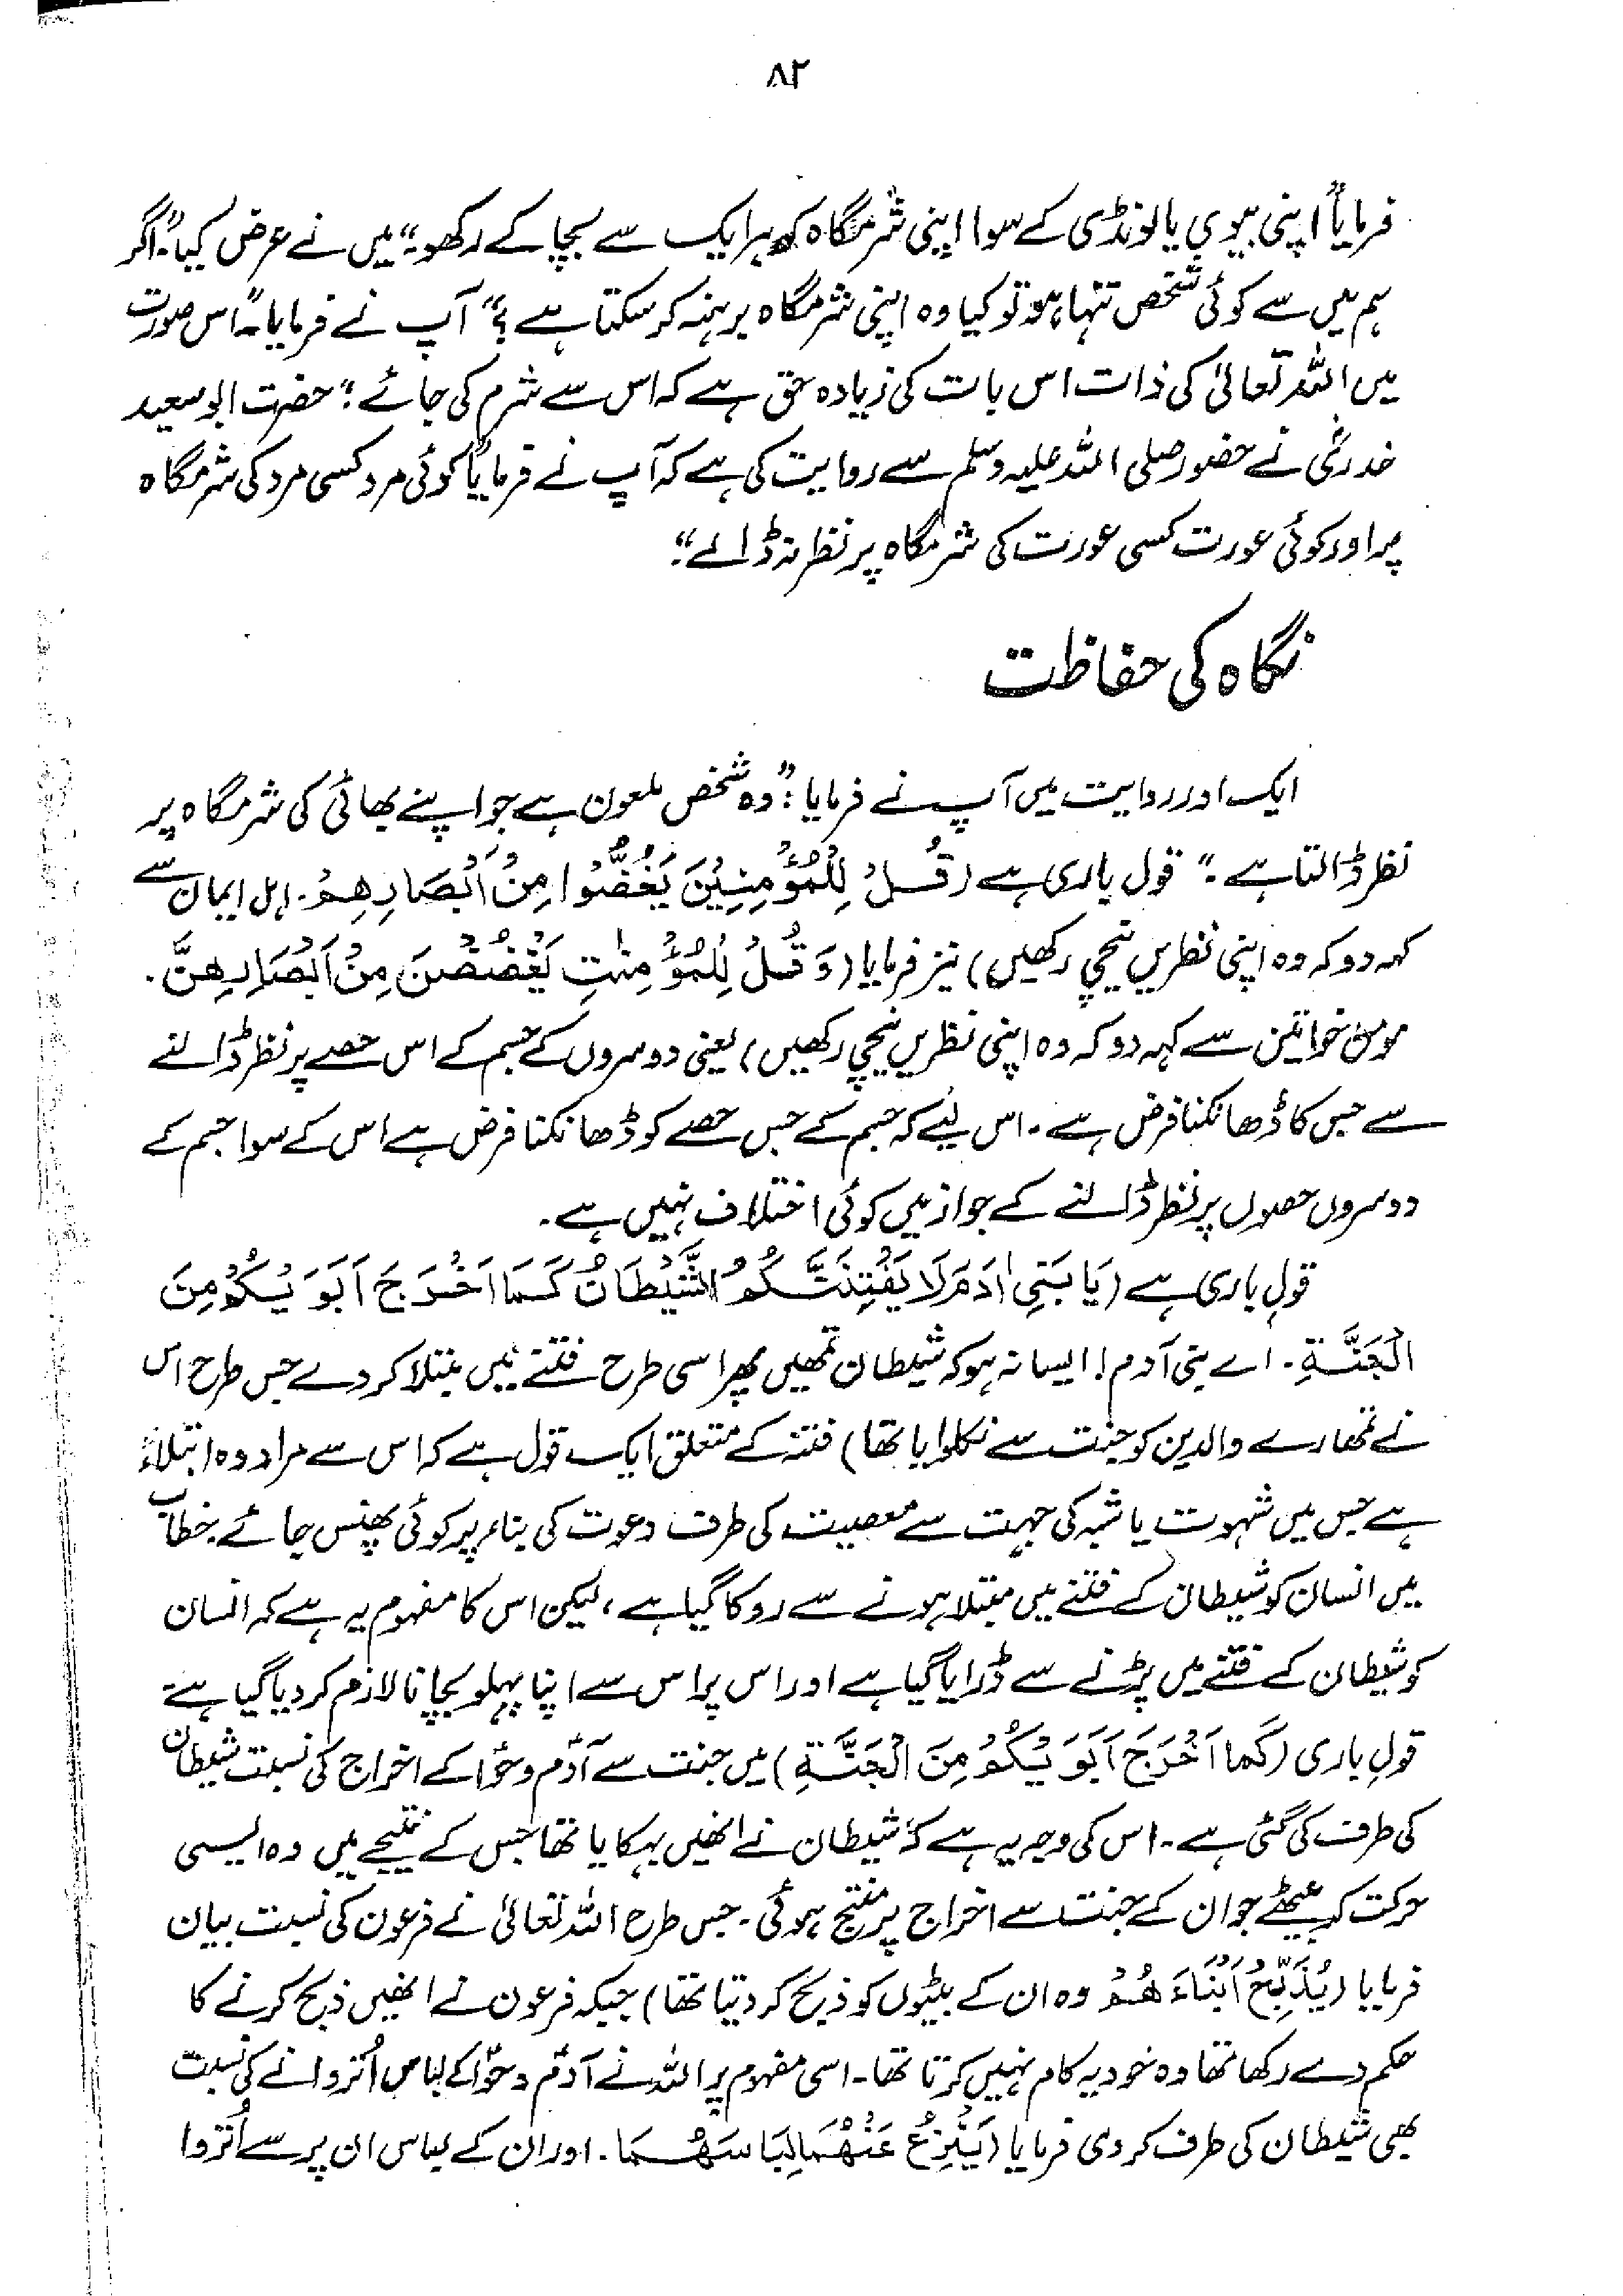 ۸۲
فرمایا "اپنی بیوی یا لونڈی کے سوا اپنی شرمگاہ کو ہر ایک سے بچا کے رکھو۔" میں نے عرض کیا۔ "اگر
ہم میں سے کوئی شخص تنہا ہو تو کیا وہ اپنی شرمگاہ برہنہ کر سکتا ہے؟" آپ نے فرمایا۔ "اس صورت
میں اللہ تعالیٰ کی ذات اس بات کی زیادہ حق ہے کہ اس سے شرم کی جائے؛" حضرت ابو سعید
خدریؓ نے حضور صلی اللہ علیہ وسلم سے روایت کی ہے کہ آپ نے فرمایا "کوئی مرد کسی مرد کی شرمگاہ
پر اور کوئی عورت کسی عورت کی شرمگاہ پر نظر نہ ڈالے۔"
نگاہ کی حفاظت
ایک اور روایت میں آپ نے فرمایا: "وہ شخص ملعون ہے جو اپنے بھائی کی شرمگاہ پر
نظر ڈالتا ہے۔" قول باری ہے (قُلْ لِلْمُؤْمِنِيْنَ يَغُضُّوْا مِنْ اَبْصَارِهِمْ۔ اہل ایمان سے
کہہ دو کہ وہ اپنی نظریں نیچی رکھیں) نیز فرمایا (وَقُلْ لِلْمُؤْمِنٰتِ يَغْضُضْنَ مِنْ اَبْصَارِهِنَّ۔
مومن خواتین سے کہہ دو کہ وہ اپنی نظریں نیچی رکھیں) یعنی دوسروں کے جسم کے اس حصے پر نظر ڈالنے
سے جس کا ڈھانکنا فرض ہے۔ اس لیے کہ جسم کے جس حصے کو ڈھانکنا فرض ہے اس کے سوا جسم کے
دوسروں حصوں پر نظر ڈالنے کے جواز میں کوئی اختلاف نہیں ہے۔
قولِ باری ہے (يَا بَنِىْ اٰدَمَ لَا يَفْتِنَنَّكُمُ الشَّيْطَانُ كَمَا اَخْرَجَ اَبَوَيْكُمْ مِنَ
الْجَنَّةِ۔ اے بنی آدم! ایسا نہ ہو کہ شیطان تمھیں پھر اسی طرح فتنے میں مبتلا کر دے جس طرح اس
نے تمھارے والدین کو جنت سے نکلوایا تھا) فتنہ کے متعلق ایک قول ہے کہ اس سے مراد وہ ابتلاء
ہے جس میں شہوت یا شبہ کی جہت سے معصیت کی طرف دعوت کی بناء پر کوئی پھنس جائے۔ خطاب
میں انسان کو شیطان کے فتنے میں مبتلا ہونے سے روکا گیا ہے، لیکن اس کا مفہوم یہ ہے کہ انسان
کو شیطان کے فتنے میں پڑنے سے ڈرایا گیا ہے اور اس پر اس سے اپنا پہلو بچانا لازم کر دیا گیا ہے۔
قولِ باری (كَمَا اَخْرَجَ اَبَوَيْكُمْ مِنَ الْجَنَّةِ) میں جنت سے آدم و حوا کے اخراج کی نسبت شیطان
کی طرف کی گئی ہے۔ اس کی وجہ یہ ہے کہ شیطان نے انھیں بہکایا تھا جس کے نتیجے میں وہ ایسی
حرکت کر بیٹھے جو ان کے جنت سے اخراج پر منتج ہوئی۔ جس طرح اللہ تعالیٰ نے فرعون کی نسبت بیان
فرمایا (يُذَبِّحُ اَبْنَاءَهُمْ وہ ان کے بیٹوں کو ذبح کر دیتا تھا) جبکہ فرعون نے انھیں ذبح کرنے کا
حکم دے رکھا تھا وہ خود یہ کام نہیں کرتا تھا۔ اسی مفہوم پر اللہ نے آدم و حوا کے لباس اُتروانے کی نسبت
بھی شیطان کی طرف کر دی فرمایا (يَنْزِعُ عَنْهُمَا لِبَاسَهُمَا۔ اور ان کے لباس ان پر سے اُتروا